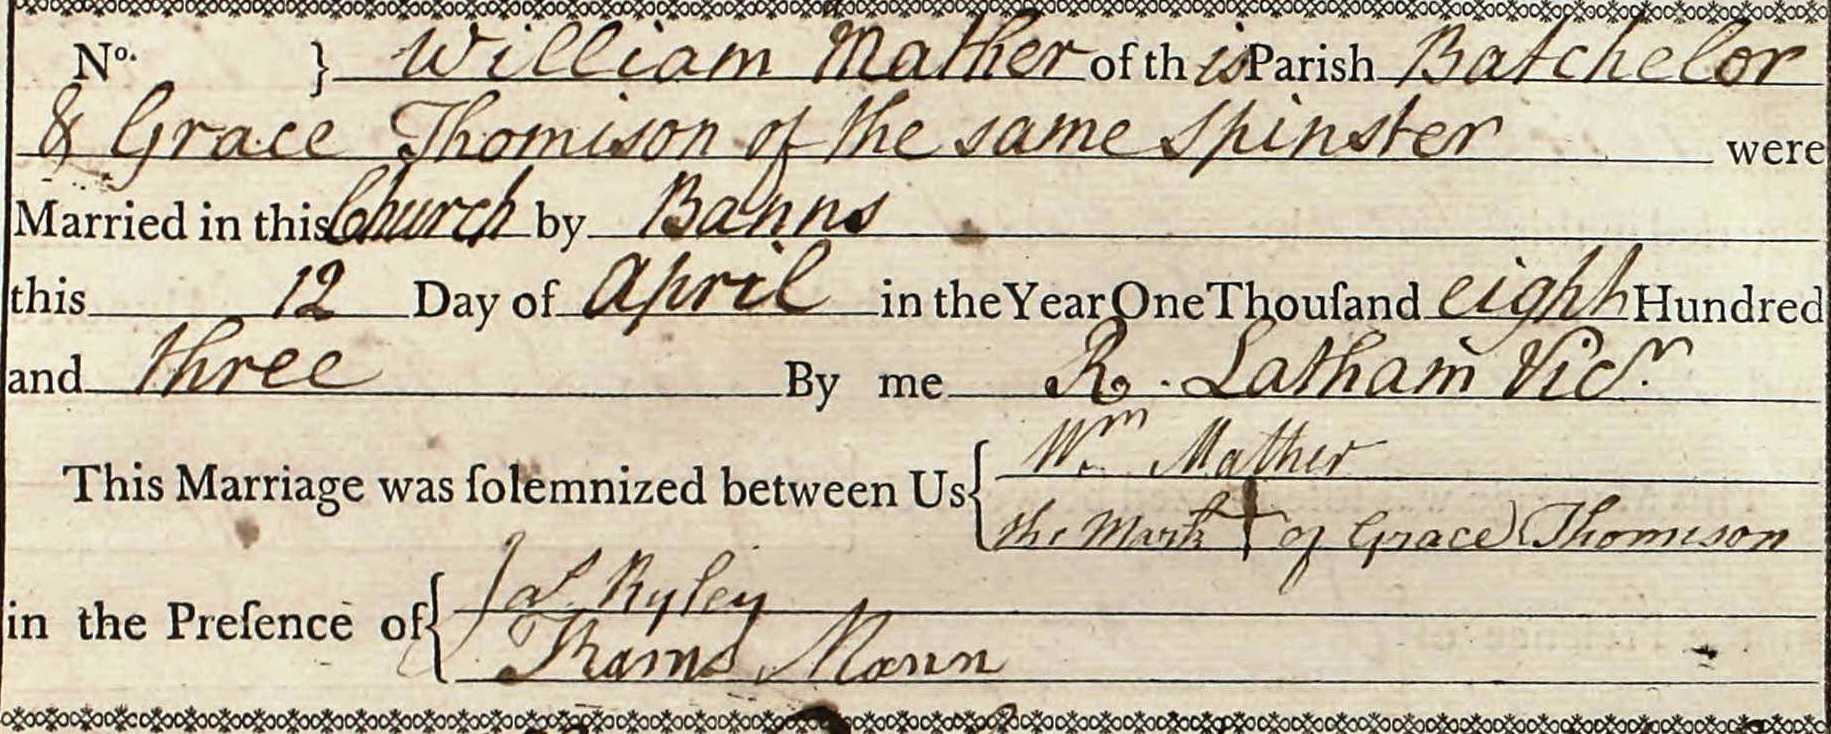 No. } William Mather of this Parish Batchelor
& Grace Thomison of the same Spinster were
Married in this Church by Banns
this 12 Day of April in the Year One Thouſand eight Hundred
and three By me R. Latham Vicr.
This Marriage was ſolemnized between Us { Wm Mather
the Mark + of Grace Thomison
in the Preſence of { Jas. Ryley
Thams Mann